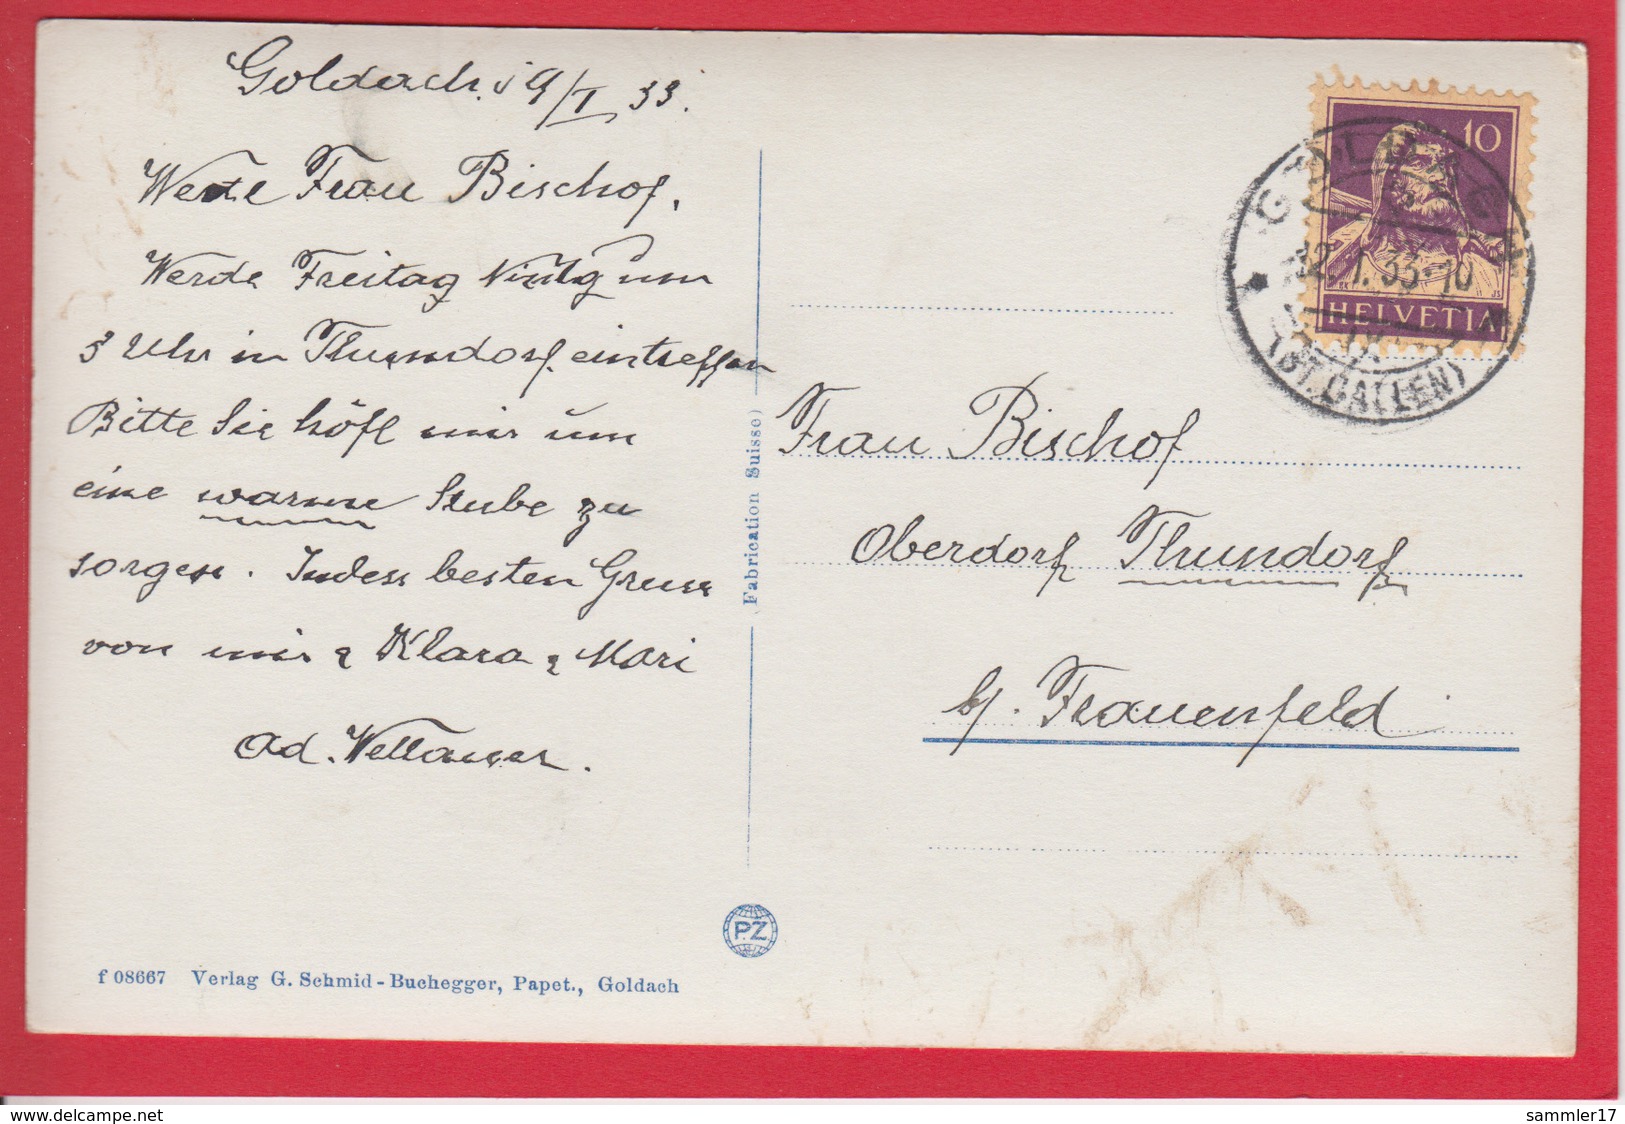 Goldach. 19/I 33.
Werte Frau Bischof,
Werde Freitag Mittg um
3 Uhr in Thundorf. eintreffen
Bitte Sie höfl mir um
eine warme Stube zu
sorgen. Indess besten Gruss
von mir & Klara & Mari
Ad. Wettauer.
Fabrication Suisse)
P.Z.
f 08667 Verlag G. Schmid-Buchegger, Papet., Goldach
10
HELVETIA
GOLDACH
12.1.33-10
(ST. GALLEN)
Frau Bischof
Oberdorf Thundorf
b/. Frauenfeld
www.delcampe.net
sammler17